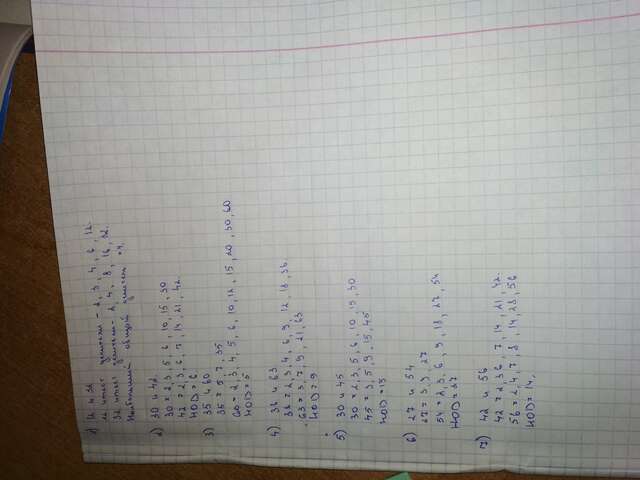 1) 12 и 32
12 имеет делители - 2, 3, 4, 6, 12.
32 имеет делители - 2, 4, 8, 16, 32.
Наибольший общий делитель = 4.
2) 30 и 42
30 = 2, 3, 5, 6, 10, 15, 30
42 = 2, 3, 6, 7, 14, 21, 42
НОD = 6
3) 35 и 60
35 = 5, 7, 35
60 = 2, 3, 4, 5, 6, 10, 12, 15, 20, 30, 60
НОD = 5
4) 36 и 63
36 = 2, 3, 4, 6, 9, 12, 18, 36
63 = 3, 7, 9, 21, 63
НОD = 9
5) 30 и 45
30 = 2, 3, 5, 6, 10, 15, 30
45 = 3, 5, 9, 15, 45
НОD = 15
6) 27 и 54
27 = 3, 9, 27
54 = 2, 3, 6, 9, 18, 27, 54
НОD = 27
7) 42 и 56
42 = 2, 3, 6, 7, 14, 21, 42
56 = 2, 4, 7, 8, 14, 28, 56
НОD = 14.